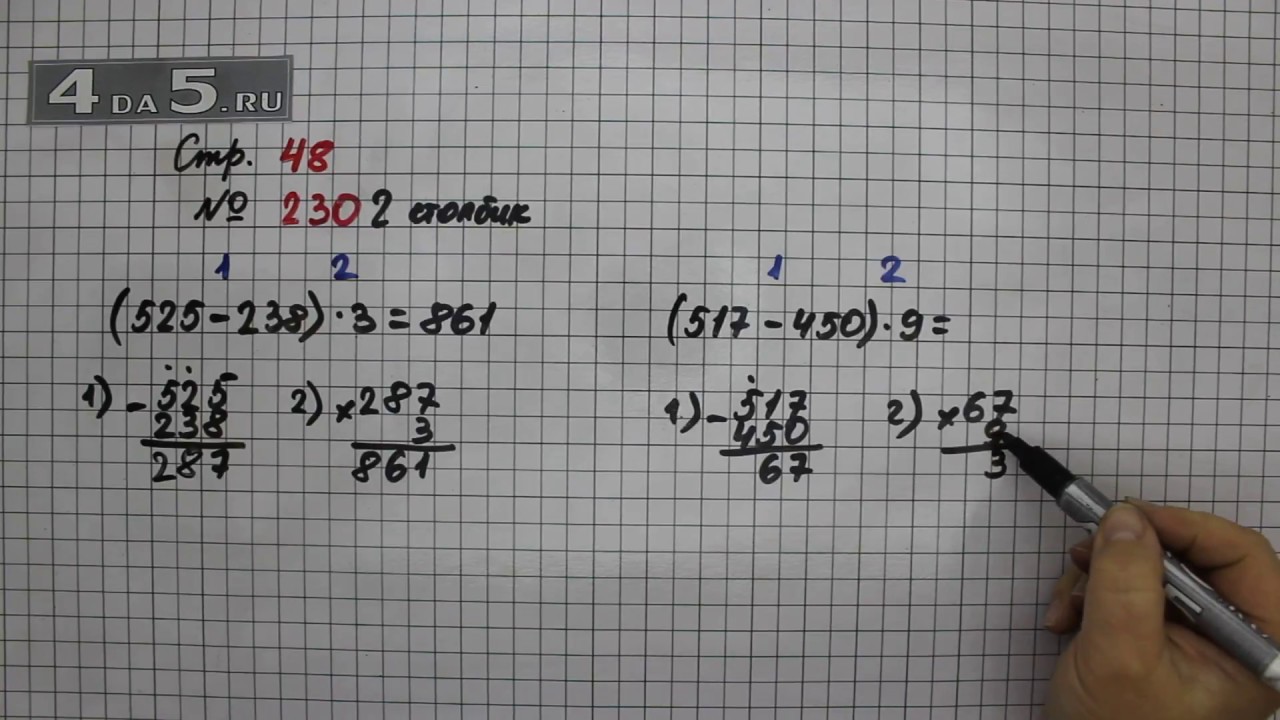 4 DA 5.RU
Стр. 48
№ 230 2 столбик
1 2
(525 - 238) · 3 = 861
1) - 525
238
287
2) × 287
3
861
1 2
(517 - 450) · 9 =
1) - 517
450
67
2) × 67
3